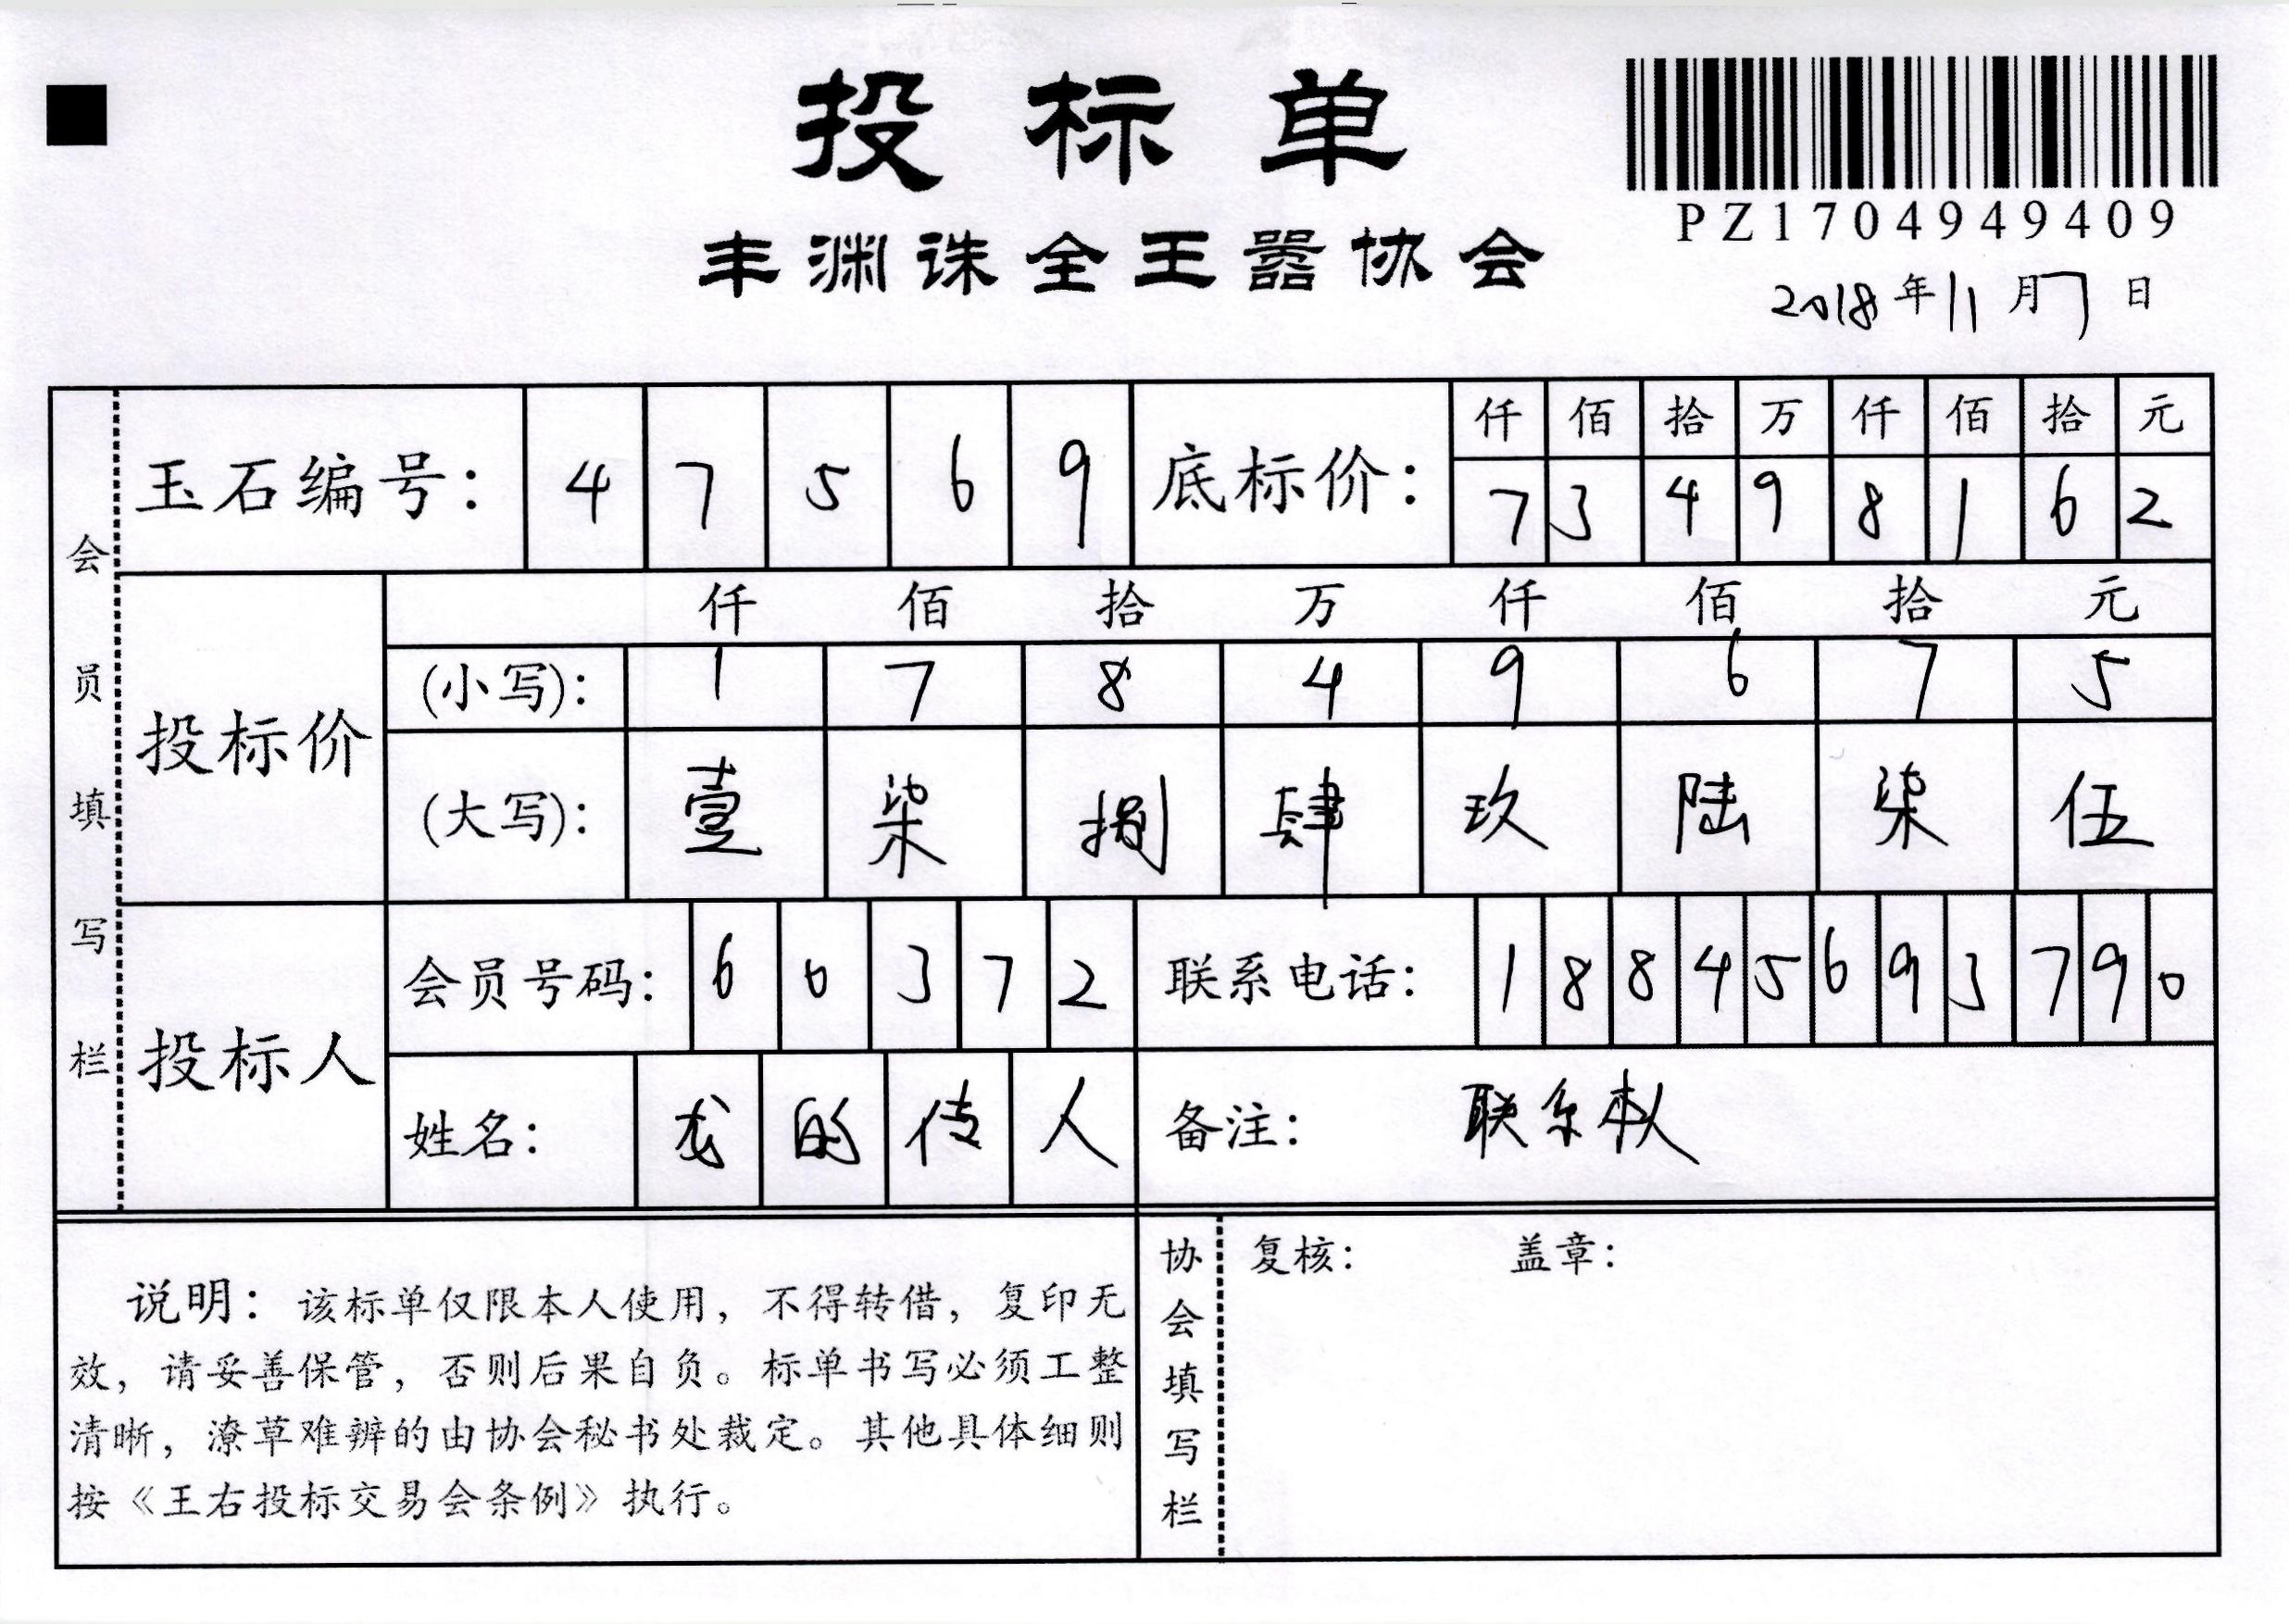 投标单
PZ1704949409
丰渊诛全王嚣协会
2018年11月7日
会员填写栏
玉石编号： 4 7 5 6 9 底标价： 仟 佰 拾 万 仟 佰 拾 元
7 3 4 9 8 1 6 2
投标价 仟 佰 拾 万 仟 佰 拾 元
(小写)： 1 7 8 4 9 6 7 5
(大写)： 壹 柒 捌 肆 玖 陆 柒 伍
投标人 会员号码： 6 0 3 7 2 联系电话： 1 8 8 4 5 6 9 3 7 9 0
姓名： 龙 的 传 人 备注： 联系本人
说明：该标单仅限本人使用，不得转借，复印无
效，请妥善保管，否则后果自负。标单书写必须工整
清晰，潦草难辨的由协会秘书处裁定。其他具体细则
按《王右投标交易会条例》执行。
协会填写栏
复核： 盖章：